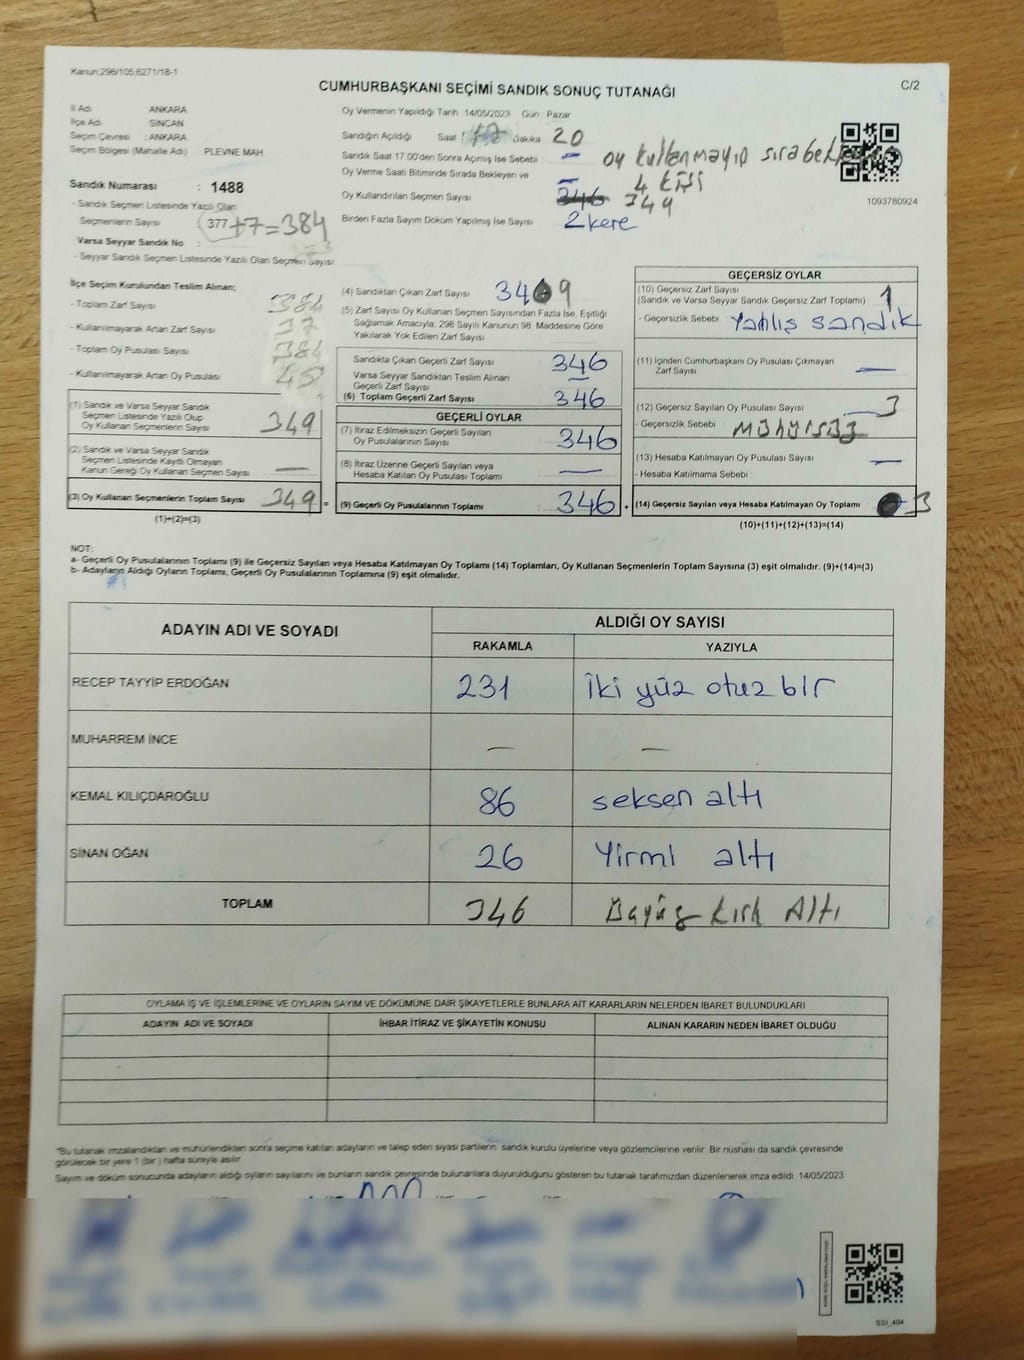 Kanun;298/105;6271/18-1
C/2
CUMHURBAŞKANI SEÇİMİ SANDIK SONUÇ TUTANAĞI
İl Adı ANKARA
İlçe Adı SİNCAN
Seçim Çevresi : ANKARA
Seçim Bölgesi (Mahalle Adı) PLEVNE MAH.
Sandık Numarası : 1488
- Sandık Seçmen Listesinde Yazılı Olan
Seçmenlerin Sayısı 377+7=384
Varsa Seyyar Sandık No :
- Seyyar Sandık Seçmen Listesinde Yazılı Olan Seçmen Sayısı
Oy Vermenin Yapıldığı Tarih 14/05/2023 Gün Pazar
Sandığın Açıldığı Saat 17 Dakika 20
Sandık Saat 17.00'den Sonra Açılmış İse Sebebi —
oy kullanmayıp sıra
Oy Verme Saati Bitiminde Sırada Bekleyen ve — 4 kişi
Oy Kullandırılan Seçmen Sayısı 346 349
Birden Fazla Sayım Döküm Yapılmış İse Sayısı 2 kere
1093780924
İlçe Seçim Kurulundan Teslim Alınan;
- Toplam Zarf Sayısı 384
- Kullanılmayarak Artan Zarf Sayısı
- Toplam Oy Pusulası Sayısı 384
- Kullanılmayarak Artan Oy Pusulası
(1) Sandık ve Varsa Seyyar Sandık
Seçmen Listesinde Yazılı Olup
Oy Kullanan Seçmenlerin Sayısı 349
(2) Sandık ve Varsa Seyyar Sandık
Seçmen Listesinde Kayıtlı Olmayan
Kanun Gereği Oy Kullanan Seçmen Sayısı —
(3) Oy Kullanan Seçmenlerin Toplam Sayısı 349 =
(1)+(2)=(3)
(4) Sandıktan Çıkan Zarf Sayısı 349
(5) Zarf Sayısı Oy Kullanan Seçmen Sayısından Fazla İse, Eşitliği
Sağlamak Amacıyla, 298 Sayılı Kanunun 98. Maddesine Göre
Yakılarak Yok Edilen Zarf Sayısı
Sandıkta Çıkan Geçerli Zarf Sayısı 346
Varsa Seyyar Sandıktan Teslim Alınan
Geçerli Zarf Sayısı —
(6) Toplam Geçerli Zarf Sayısı 346
GEÇERLİ OYLAR
(7) İtiraz Edilmeksizin Geçerli Sayılan
Oy Pusulalarının Sayısı 346
(8) İtiraz Üzerine Geçerli Sayılan veya
Hesaba Katılan Oy Pusulası Toplamı —
(9) Geçerli Oy Pusulalarının Toplamı 346 +
GEÇERSİZ OYLAR
(10) Geçersiz Zarf Sayısı
(Sandık ve Varsa Seyyar Sandık Geçersiz Zarf Toplamı) 1
- Geçersizlik Sebebi Yanlış sandık
(11) İçinden Cumhurbaşkanı Oy Pusulası Çıkmayan
Zarf Sayısı —
(12) Geçersiz Sayılan Oy Pusulası Sayısı 3
- Geçersizlik Sebebi Mühürsüz
(13) Hesaba Katılmayan Oy Pusulası Sayısı —
- Hesaba Katılmama Sebebi
(14) Geçersiz Sayılan veya Hesaba Katılmayan Oy Toplamı 3
(10)+(11)+(12)+(13)=(14)
NOT:
a- Geçerli Oy Pusulalarının Toplamı (9) ile Geçersiz Sayılan veya Hesaba Katılmayan Oy Toplamı (14) Toplamları, Oy Kullanan Seçmenlerin Toplam Sayısına (3) eşit olmalıdır. (9)+(14)=(3)
b- Adayların Aldığı Oyların Toplamı, Geçerli Oy Pusulalarının Toplamına (9) eşit olmalıdır.
ADAYIN ADI VE SOYADI ALDIĞI OY SAYISI
RAKAMLA YAZIYLA
RECEP TAYYİP ERDOĞAN 231 iki yüz otuz bir
MUHARREM İNCE — —
KEMAL KILIÇDAROĞLU 86 seksen altı
SİNAN OĞAN 26 Yirmi altı
TOPLAM 346 Kırk Altı
OYLAMA İŞ VE İŞLEMLERİNE VE OYLARIN SAYIM VE DÖKÜMÜNE DAİR ŞİKAYETLERLE BUNLARA AİT KARARLARIN NELERDEN İBARET BULUNDUKLARI
ADAYIN ADI VE SOYADI İHBAR İTİRAZ VE ŞİKAYETİN KONUSU ALINAN KARARIN NEDEN İBARET OLDUĞU
*Bu tutanak imzalandıktan ve mühürlendikten sonra seçime katılan adayların ve talep eden siyasi partilerin sandık kurulu üyelerine veya gözlemcilerine verilir. Bir nüshası da sandık çevresinde
görülecek bir yere 1 (bir) hafta süreyle asılır.
Sayım ve döküm sonucunda adayların aldığı oyların sayılarını ve bunların sandık çevresinde bulunanlara duyurulduğunu gösteren bu tutanak tarafımızdan düzenlenerek imza edildi. 14/05/2023
SSI_404